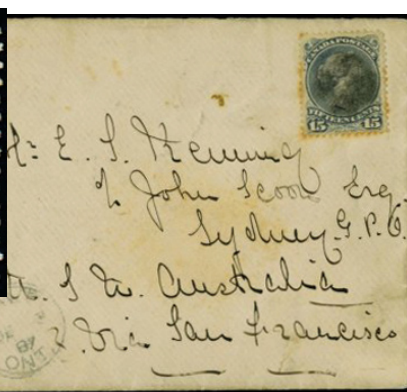 CANADA POSTAGE
FIFTEEN CENTS
15 15
Mr E. S. Fleming
c/o John Scoon Esq.
Sydney. G. P. O.
N. S. W. Australia
Via San Francisco
87
ONT